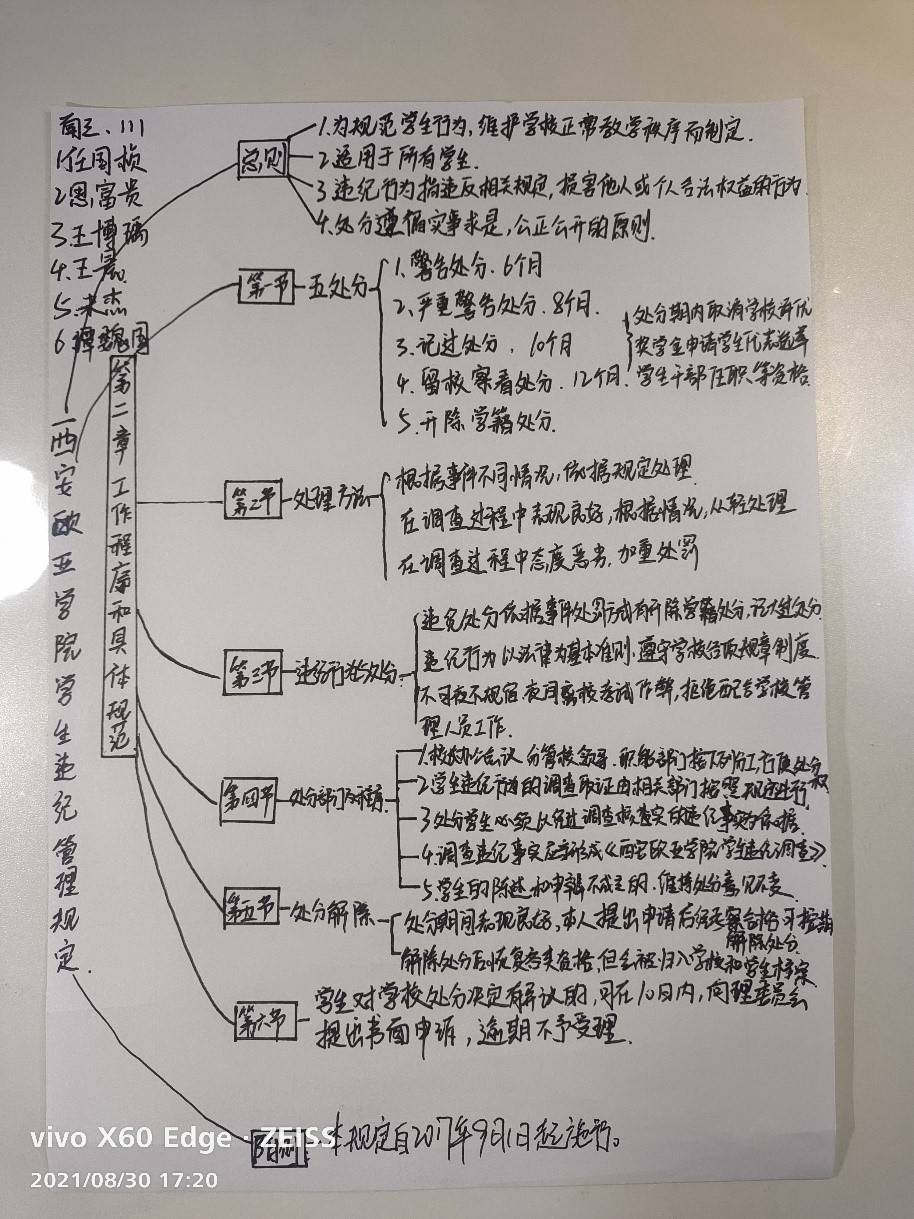 南三、111
1.任国桢
2.思富贵
3.王博瑀
4.王
5.未杰
6.魏国
西安欧亚学院学生违纪管理规定.
总则
1.为规范学生行为,维护学校正常教学秩序而制定.
2.适用于所有学生.
3.违纪行为指违反相关规定,损害他人或个人合法权益的行为.
4.处分遵循实事求是,公正公开的原则.
第二章工作程序和具体规范
第一节
五处分
1.警告处分.6个月
2.严重警告处分.8个月.
3.记过处分.10个月
4.留校察看处分.12个月.
5.开除学籍处分.
处分期内取消学校评优
奖学金申请学生代表选举
学生干部任职等资格
第二节
处理方法
根据事件不同情况,依据规定处理.
在调查过程中表现良好,根据情况,从轻处理
在调查过程中态度恶劣,加重处罚
第三节
违纪行为处分.
违纪处分依据事件处罚方式有开除学籍处分,记过处分
违纪行为以法律为基本准则.遵守学校各项规章制度.
不可夜不归宿夜间离校考试作弊,拒绝配合学校管
理人员工作.
第四节
处分部门及
1.校长办公会议 分管校领导.职能部门按下列分工行使处分权
2.学生违纪行为的调查取证由相关部门按照规定进行
3.处分学生必须以经过调查核查实的违纪事实为依据.
4.调查违纪事实后形成《西安欧亚学院学生违纪调查》
5.学生的陈述和申辩不成立的.维持处分意见不变
第五节
处分解除
处分期间表现良好,本人提出申请后经考察合格可按期
解除处分
解除处分后恢复各类资格,但会被归入学校和学生档案
第六节
学生对学校处分决定有异议的,可在10日内,向理委员会
提出书面申诉,逾期不予受理.
附则
本规定自2017年9月1日起施行。
vivo X60 Edge · ZEISS
2021/08/30 17:20